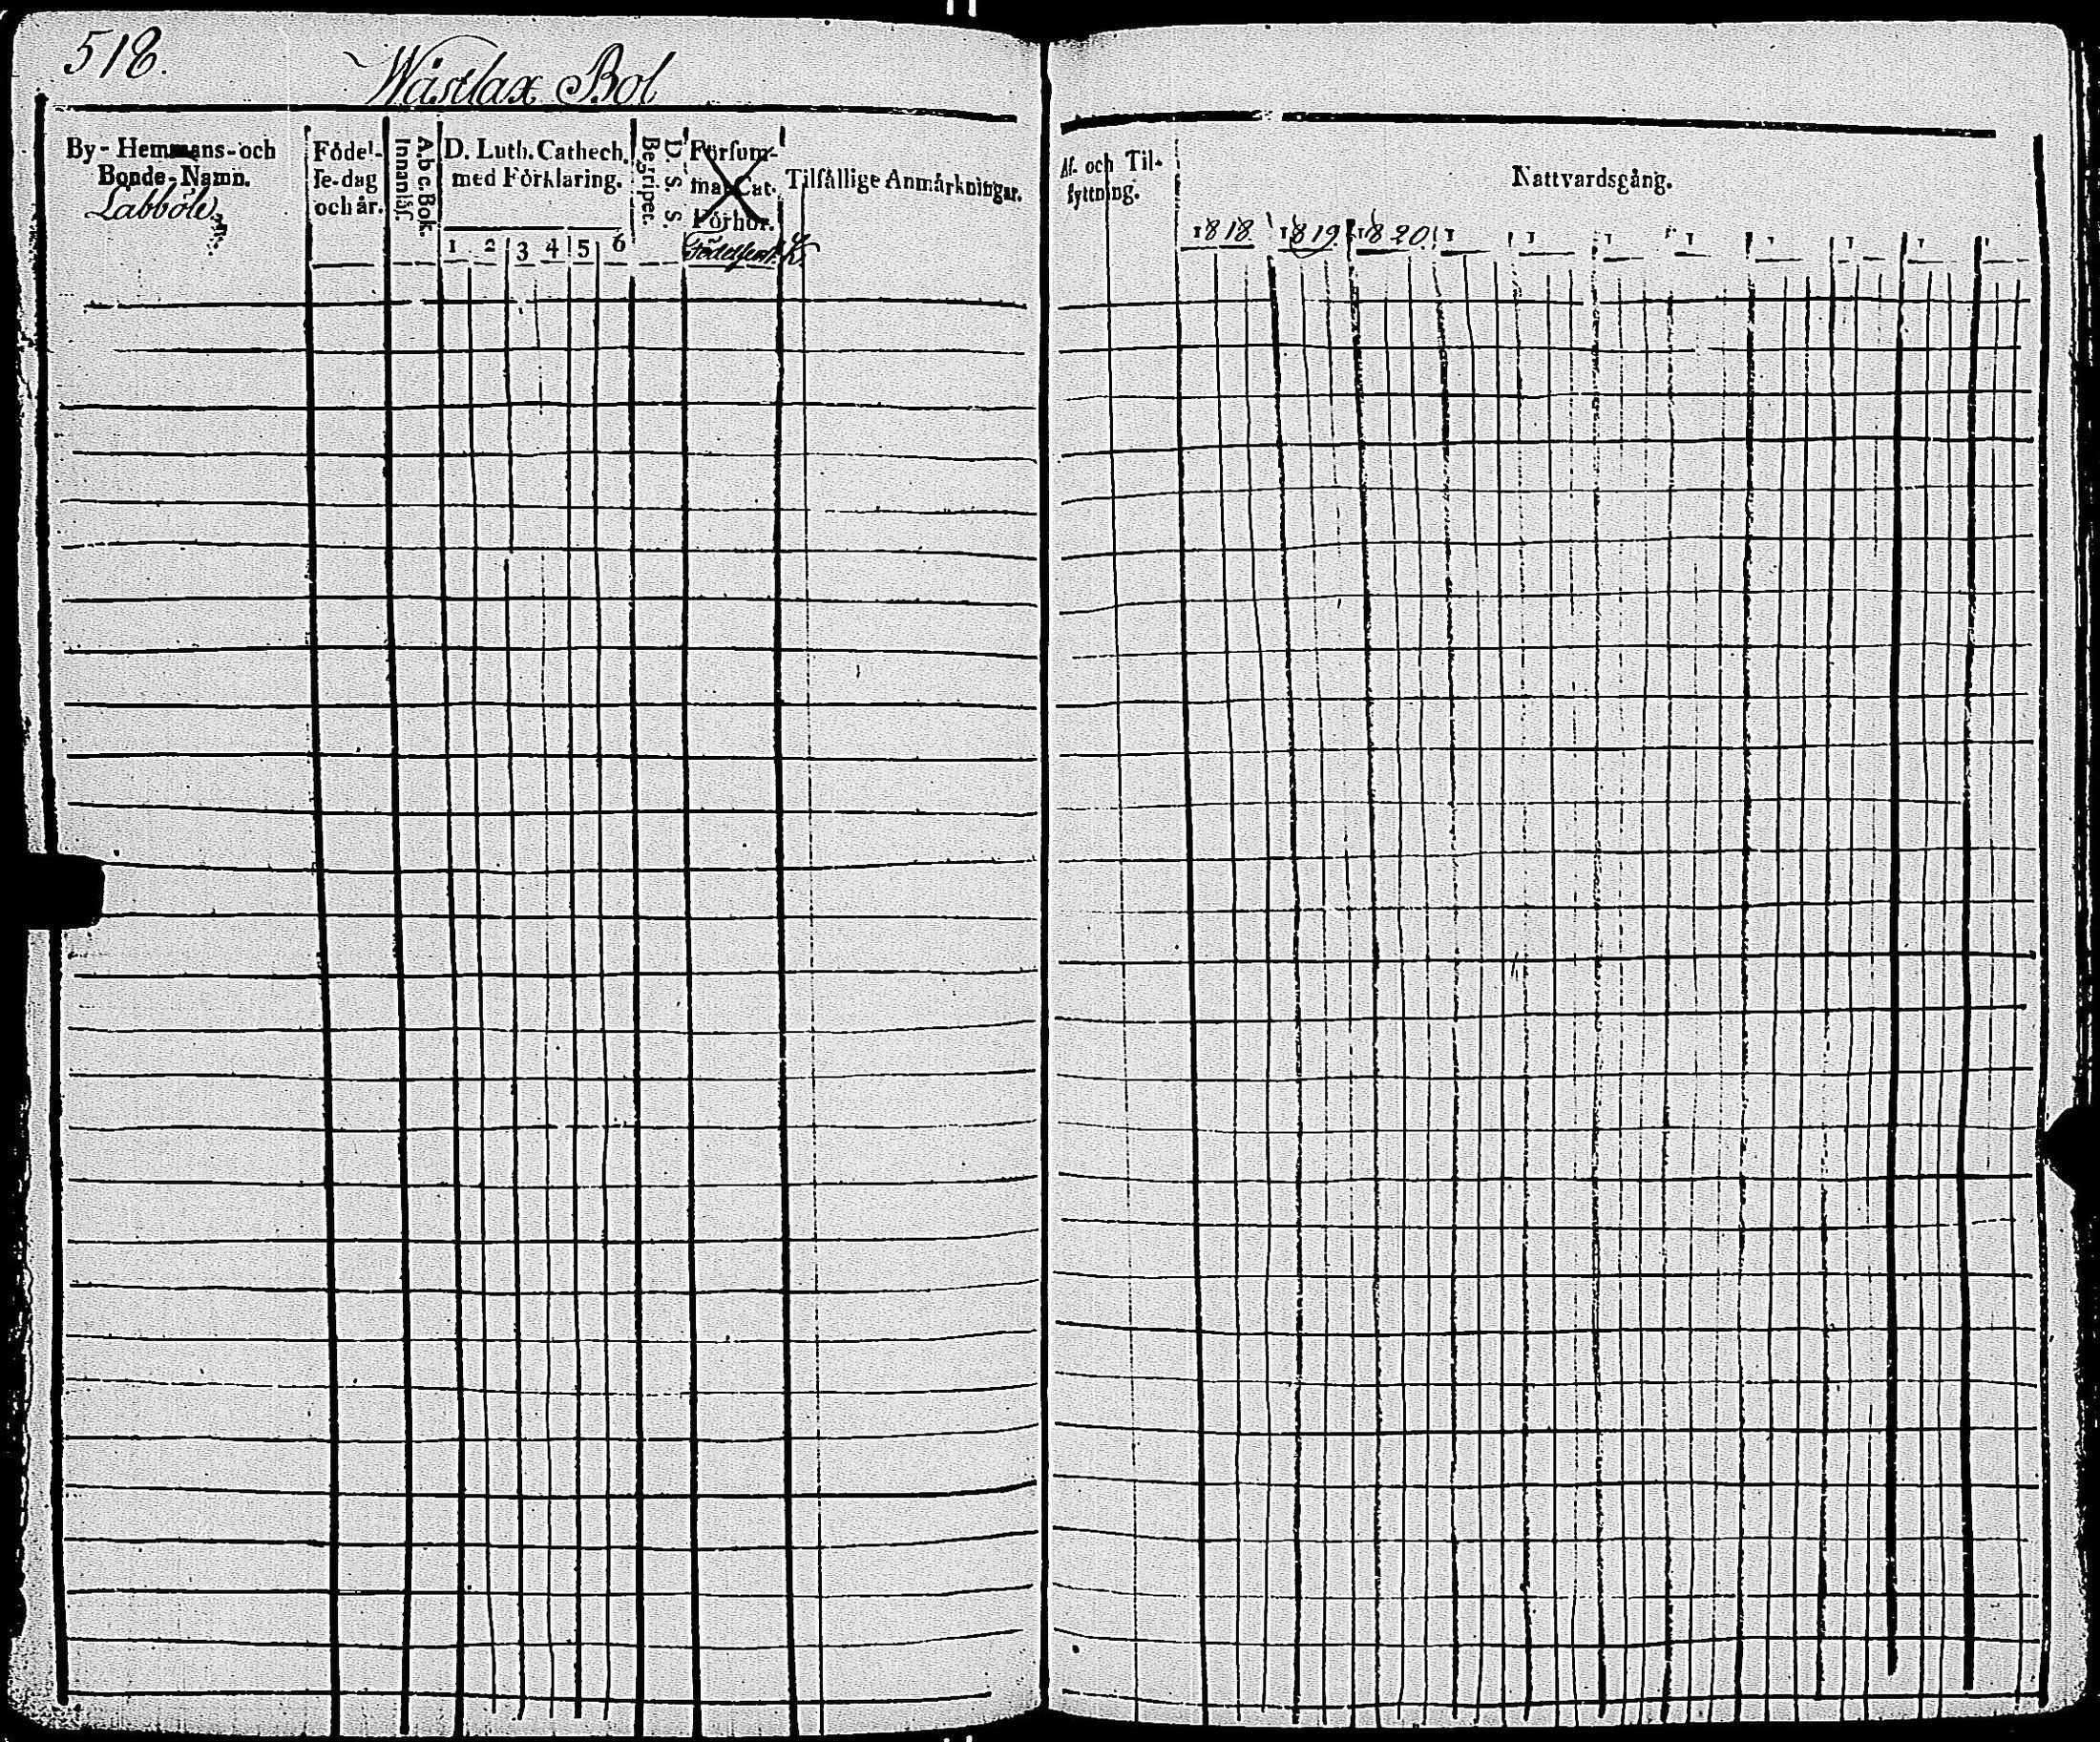 518.
Wästlax Bol
By-Hemmans-och
Bonde-Namn.
Labböle
Födel-
se-dag
och år.
A.b.c. Bok.
Innanläs.
D. Luth. Cathech.
med Förklaring.
1 2 3 4 5 6
D. S. S.
Begripet.
Försum-
ma. Cat.
Förhör.
Födelseort
Tilfällige Anmärkningar.
Af. och Til-
fyttning.
Nattvardsgång.
1818. 1819. 1820. 1 1 1 1 1 1 1 1